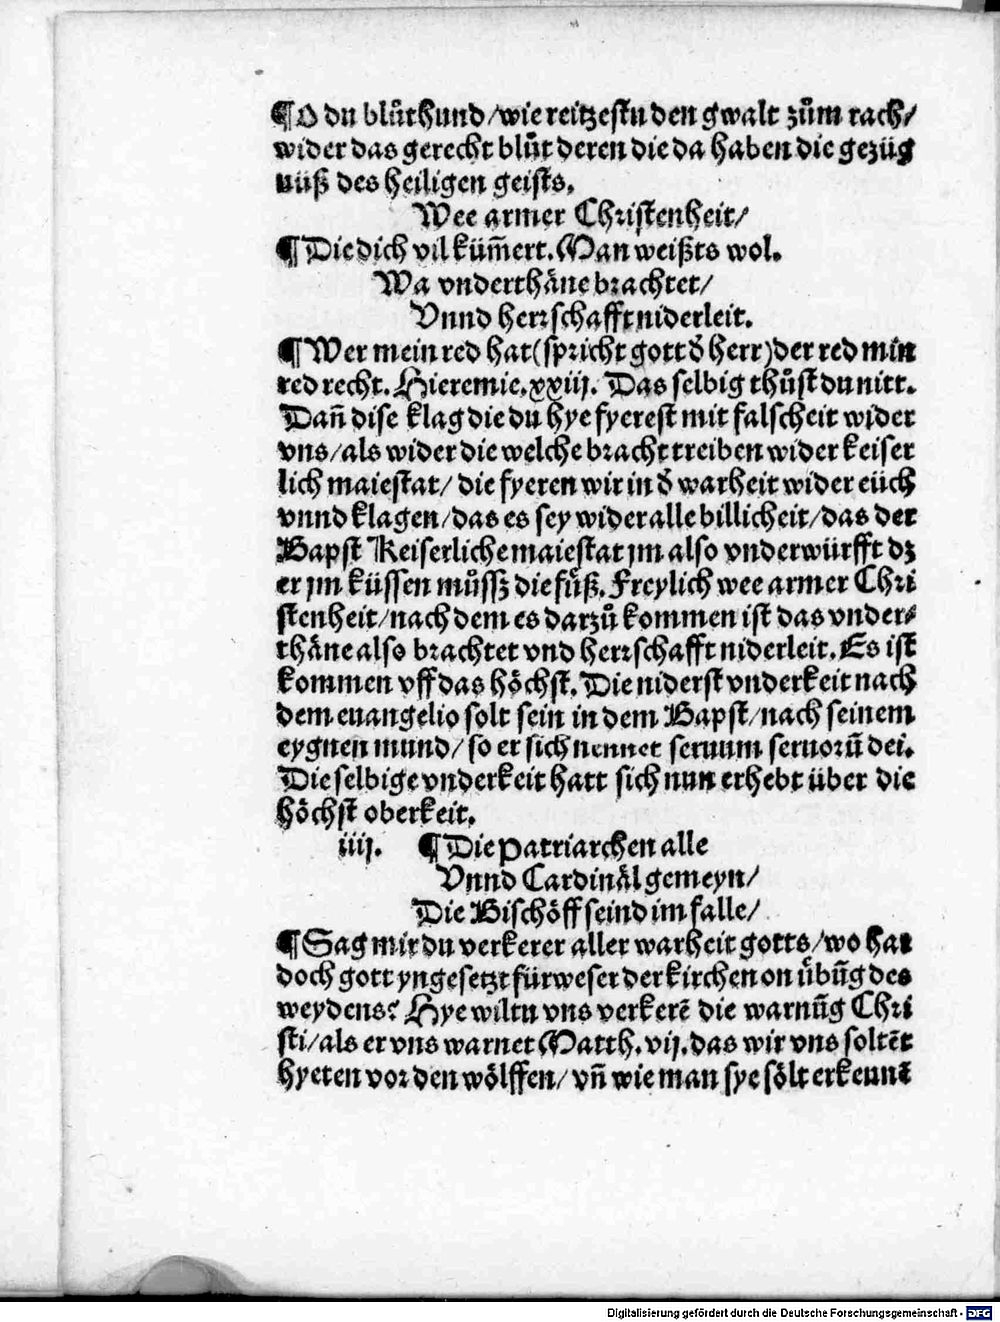 ¶O du blůthund/wie reitzestu den gwalt zům rach/
wider das gerecht blůt deren die da haben die gezüg
nüß des heiligen geists.
Wee armer Christenheit/
¶Die dich vil küm̄ert. Man weißts wol.
Wa vnderthäne brachtet/
Vnnd herrschafft niderleit.
¶Wer mein red hat(spricht gott d̕ herr)der red min
red recht. Hieremie.xxiij. Das selbig thůst du nitt.
Dañ dise klag die du hye fyerest mit falscheit wider
vns/als wider die welche bracht treiben wider keiser
lich maiestat/ die fyeren wir in d̕ warheit wider eüch
vnnd klagen/das es sey wider alle billicheit/das der
Bapst Keiserliche maiestat jm also vnderwürfft dz
er jm küssen můssz die fůß. Freylich wee armer Chri
stenheit/nach dem es darzů kommen ist das vnder⸗
thäne also brachtet vnd herrschafft niderleit. Es ist
kommen vff das höchst. Die niderst vnderkeit nach
dem euangelio solt sein in dem Bapst/nach seinem
eygnen mund/ so er sich nennet seruum seruorū dei.
Die selbige vnderkeit hatt sich nun erhebt über die
höchst oberkeit.
iiij. ¶Die patriarchen alle
Vnnd Cardinäl gemeyn/
Die Bischöff seind im falle/
¶Sag mir du verkerer aller warheit gotts/wo hat
doch gott yngesetzt fürweser der kirchen on übūg des
weydens? Hye wiltu vns verkerē die warnūg Chri
sti/als er vns warnet Matth.vij.das wir vns soltēt
hyeten vor den wölffen/ vñ wie man sye sölt erkennē
Digitalisierung gefördert durch die Deutsche Forschungsgemeinschaft - DFG